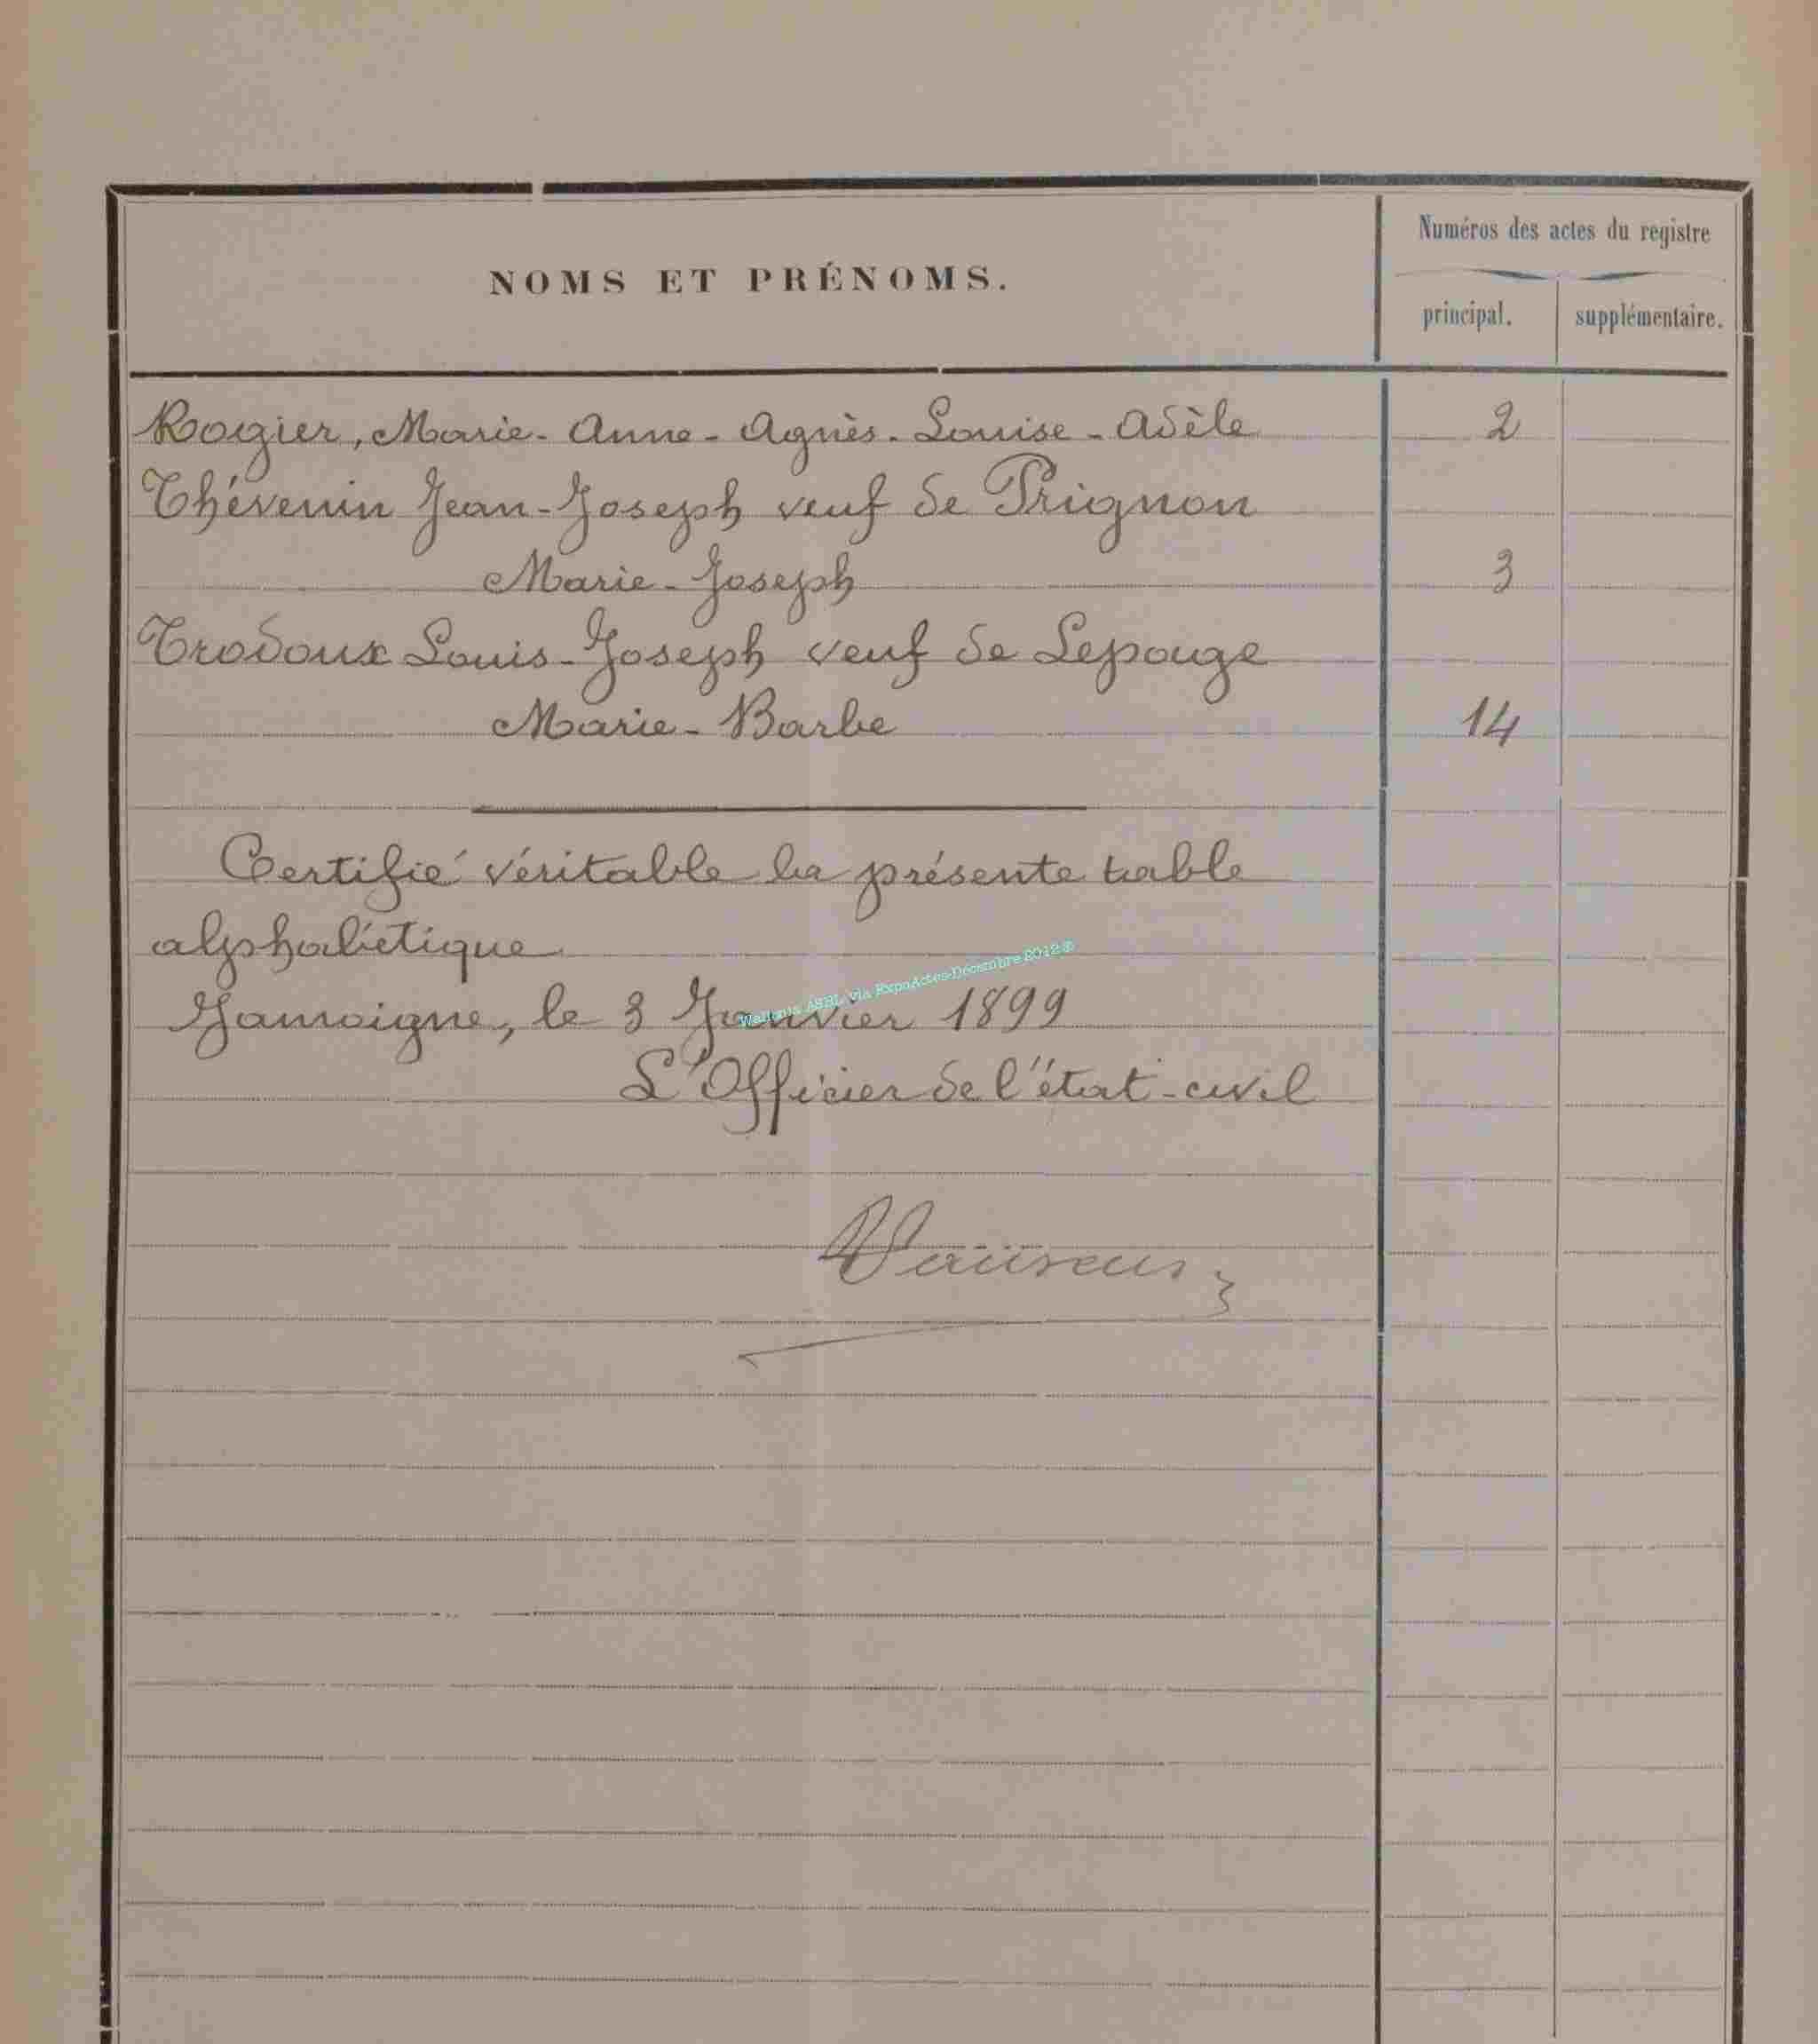 NOMS ET PRÉNOMS.
Numéros des actes du registre
principal.
supplémentaire.
Rogier, Marie-Anne-Agnès-Louise-Adèle 2
Thévenin Jean-Joseph veuf de Prignon
Marie-Joseph 3
Trodoux Louis-Joseph veuf de Lepouge
Marie-Barbe 14
Certifié véritable la présente table
alphabétique
Jamoigne, le 3 Janvier 1899
L'Officier de l'état-civil
via ExpoActes-Décembre 2012©